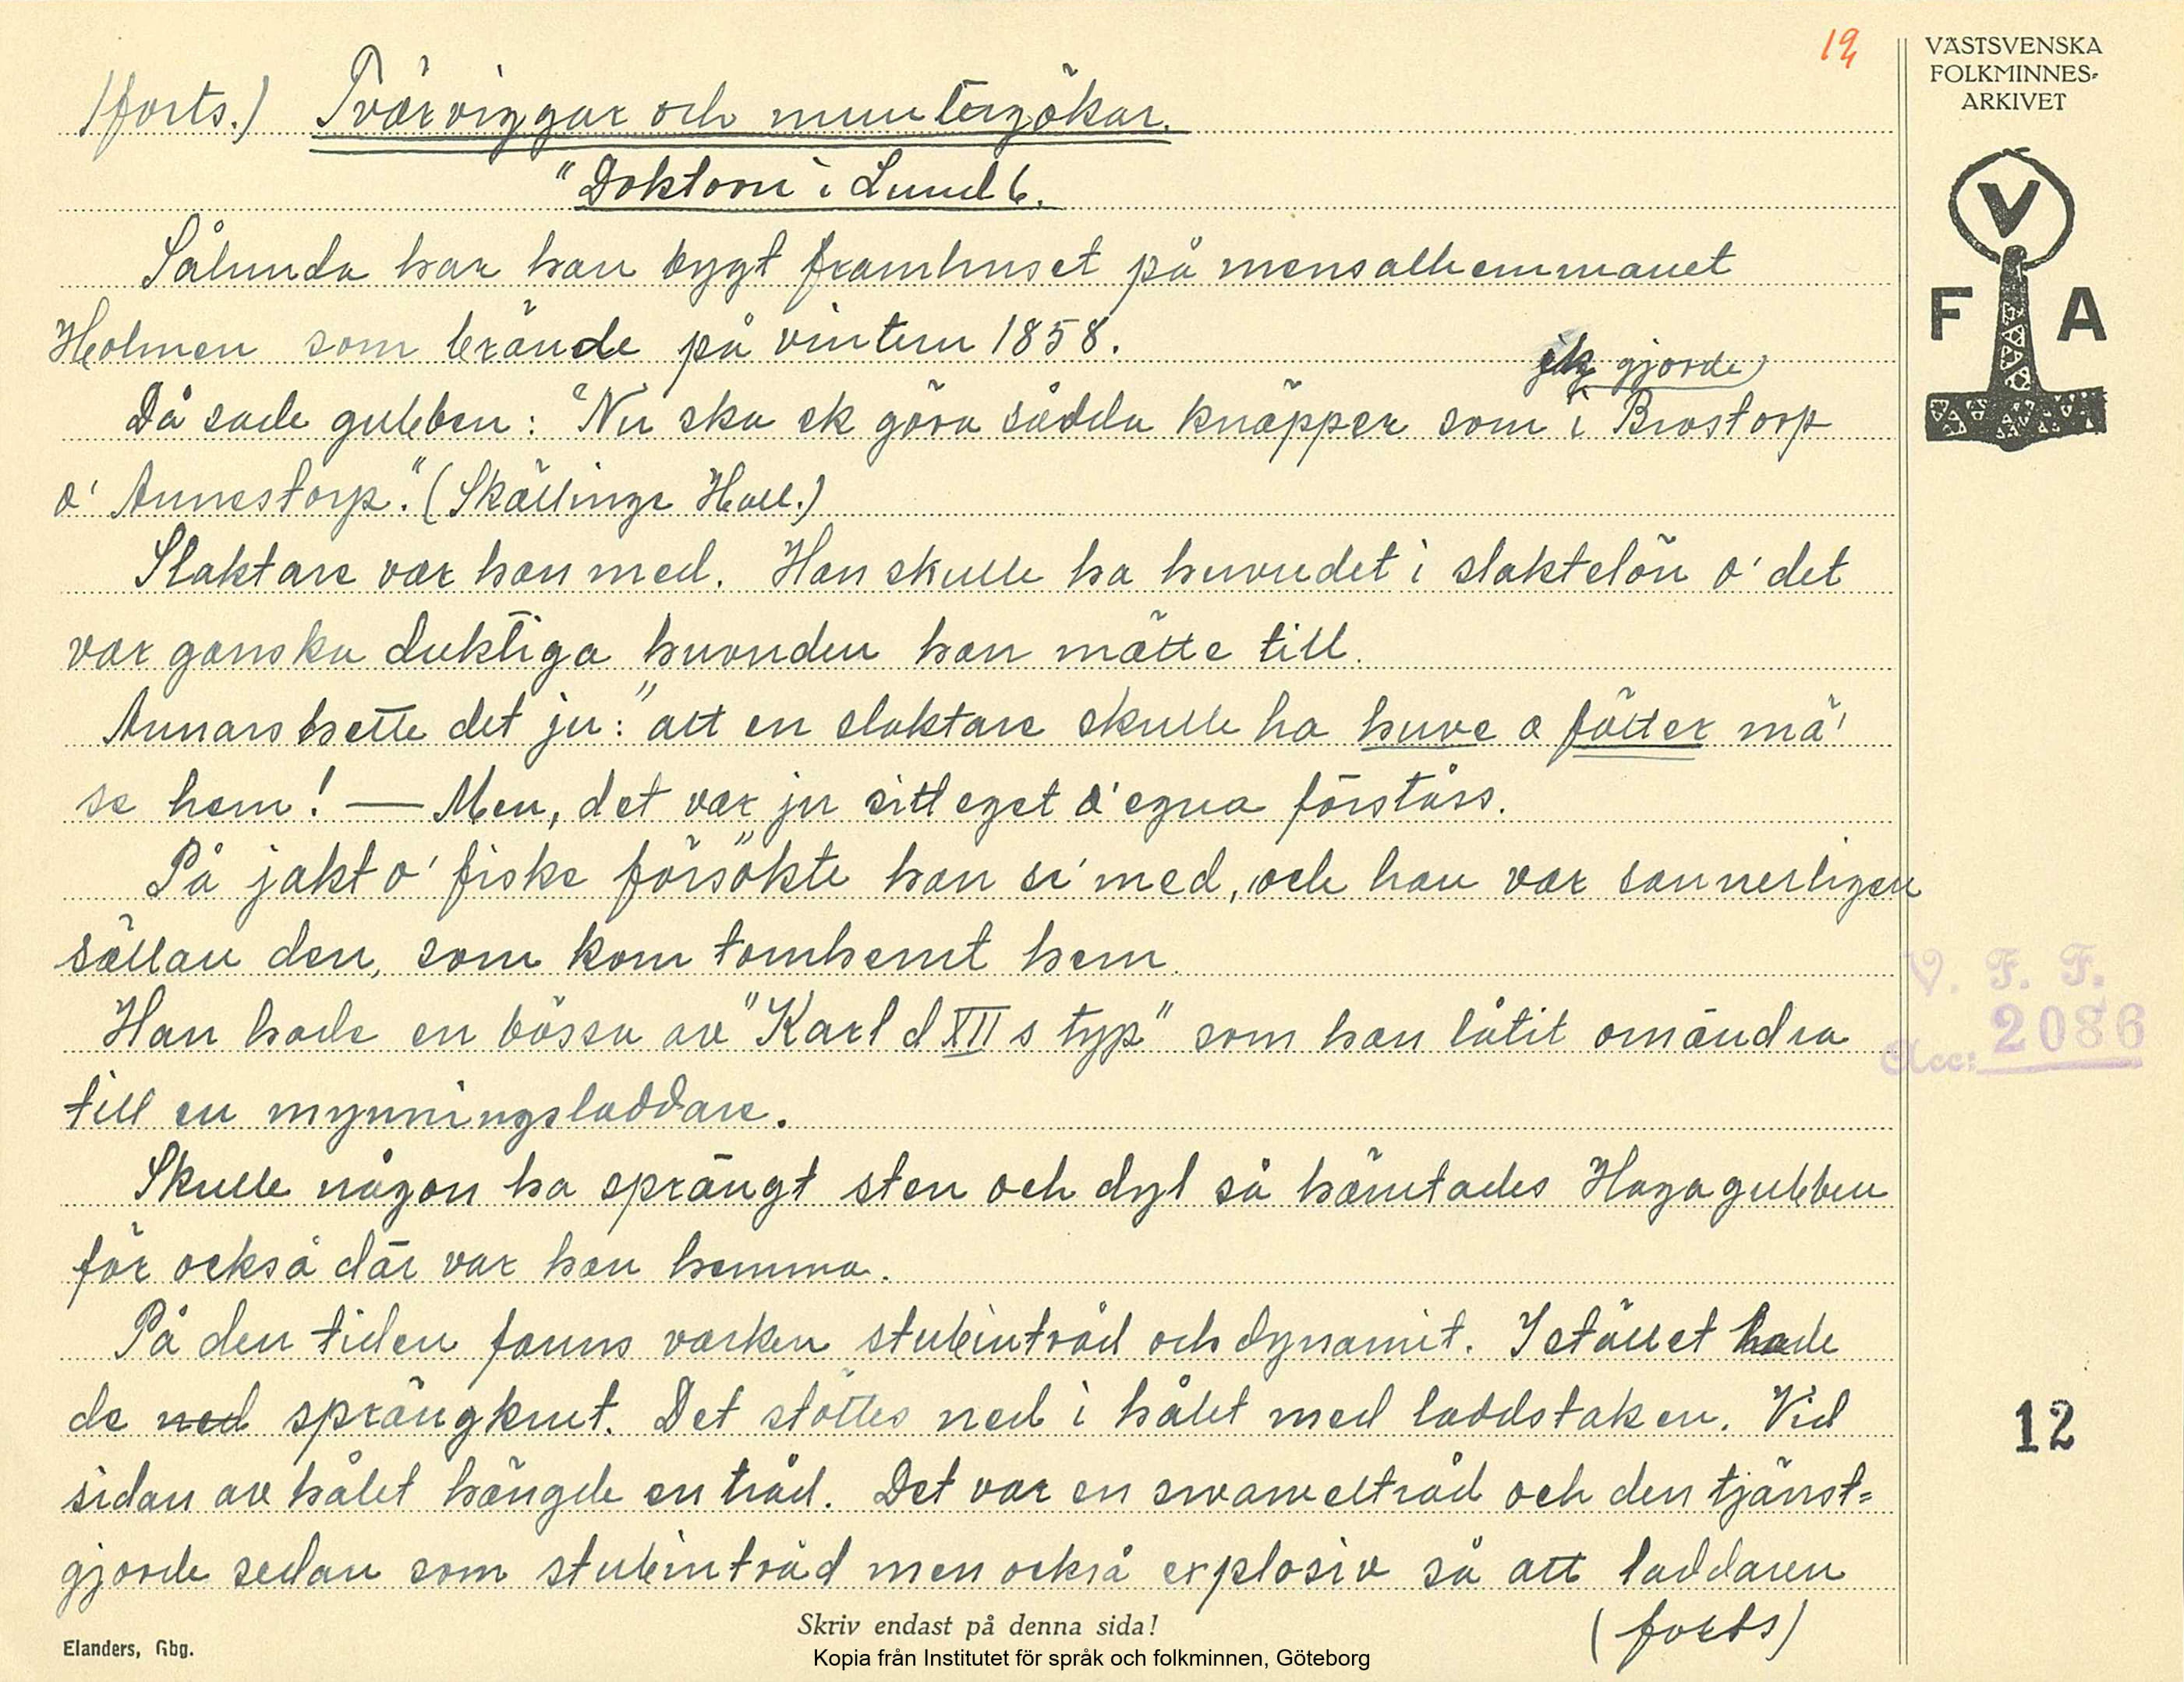 19
VÄSTSVENSKA
FOLKMINNES-
ARKIVET
V
F A
(forts.) Tvärviggar och muntergökar.
"Doktorn i Lund 6.
Sålunda har han bygt framhuset på mensalhemmanet
Holmen som brände på vintern 1858.
jek gjorde
Då sade gubben: "Nu ska ek göra sådda knäpper som i Brostorp
o' Annestorp." (Skällinge Hall.)
Slaktare var han med. Han skulle ha huvudet i slaktelön o' det
var ganska duktiga huvuden han mätte till.
Annars hette det ju: "att en slaktare skulle ha huve o fötter mä'
se hem! — Men, det var ju sitt eget o' egna förståss.
På jakt o' fiske försökte han se' med, och han var sannerligen
sällan den, som kom tomhemt hem.
Han hade en bössa av "Karl d XII s typ" som han låtit omändra
till en mynningsladdare.
Skulle någon ha sprängt sten och dyl så hämtades Hagagubben
för också där var han hemma.
På den tiden fanns varken stubintråd och dynamit. I stället hade
de ned sprängkrut. Det stöttes ned i hålet med laddstaken. Vid
sidan av hålet hängde en tråd. Det var en svaveltråd och den tjänst=
gjorde sedan som stubintråd men också explosiv så att laddaren
(forts)
V. F. F.
Acc: 2086
12
Skriv endast på denna sida!
Elanders, Gbg.
Kopia från Institutet för språk och folkminnen, Göteborg